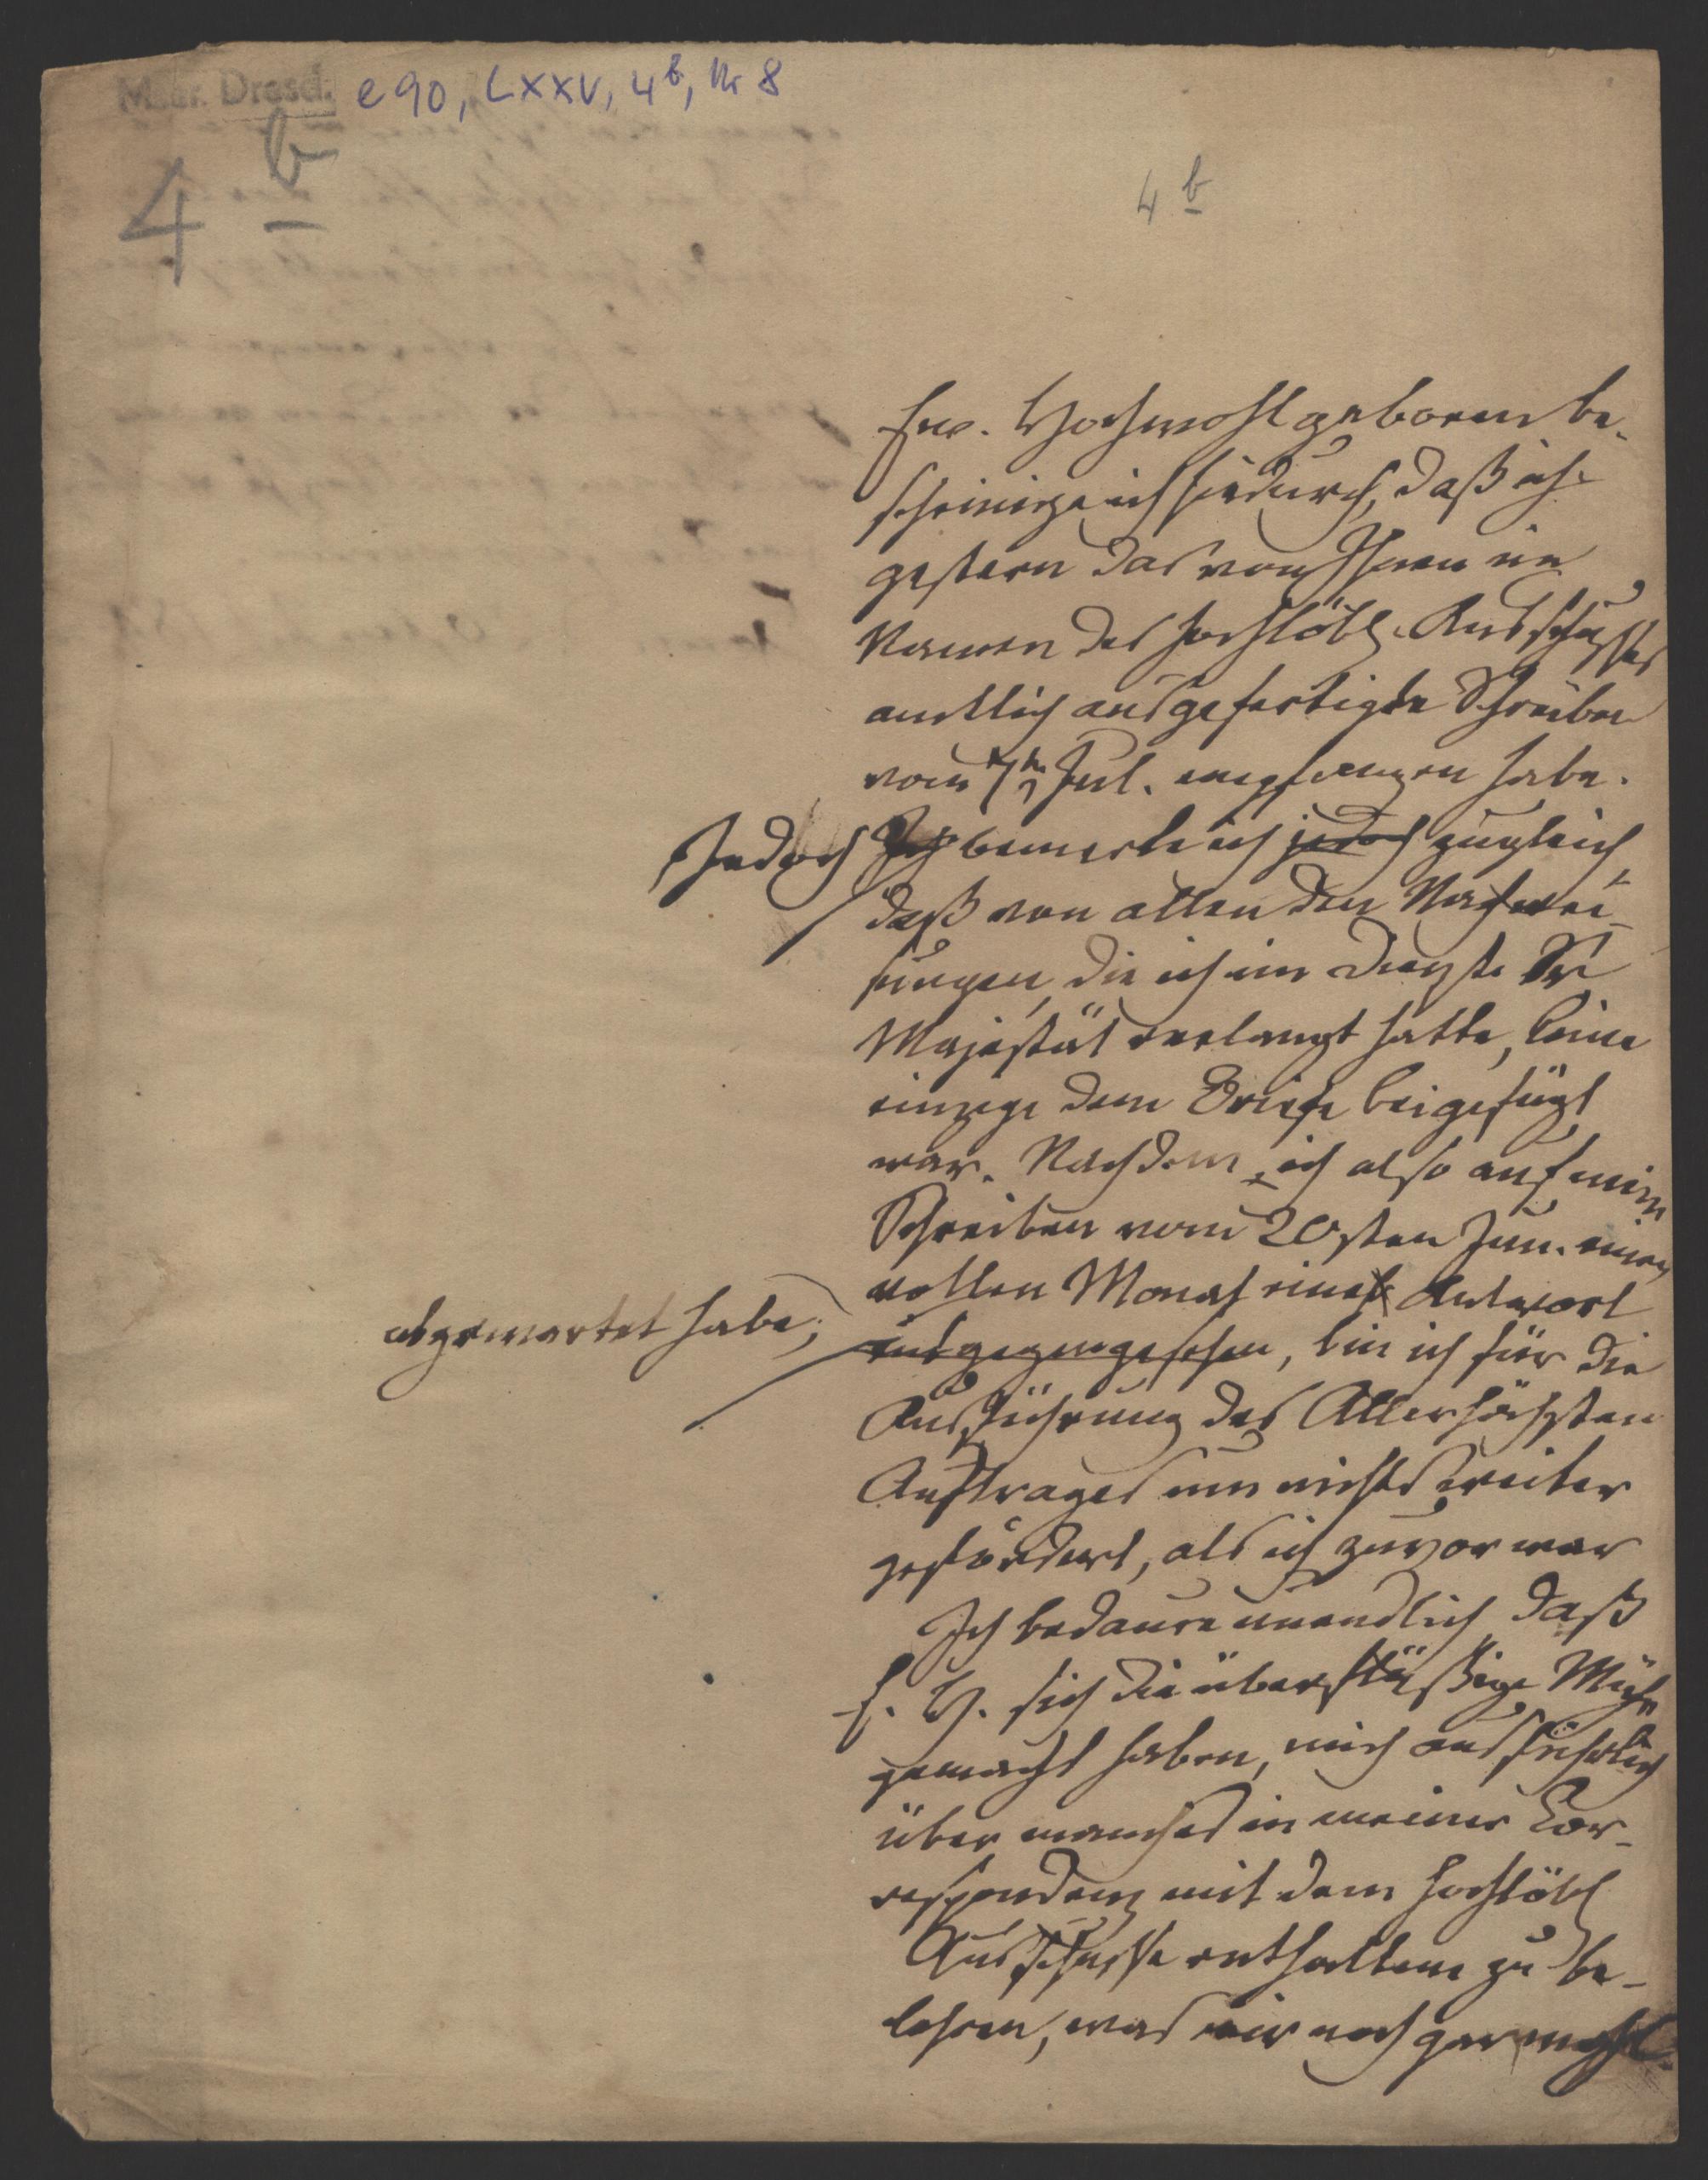 Mscr. Dresd. e 90, LXXV, 4b, Nr 8
4 b
4 b
Ew. Hochwohlgeboren be-
scheinige ich hiedurch, daß ich
gestern das von Ihnen im
Namen des hochlöbl. Ausschusses
amtlich ausgefertigte Schreiben
vom 7ten Jul. empfangen habe.
Jedoch Ich bemerke ich jedoch zugleich,
daß von allen den Nachwei-
sungen, die ich im Dienste Sr
Majestät verlangt hatte, keine
einzige dem Briefe beigefügt
war. Nachdem ich also auf mein
Schreiben vom 20sten Jun. einen
vollen Monat eine Antwort
abgewartet habe; entgegengesehen, bin ich für die
Ausführung des Allerhöchsten
Auftrages um nichts weiter
gefördert, als ich zuvor war
Ich bedaure unendlich daß
E. H. sich die überflüßige Mühe
gemacht haben, mich ausführlich
über manches in meiner Cor-
respondenz mit dem hochlöbl
Ausschusse enthaltene zu be-
lehren, was mir noch gar wohl